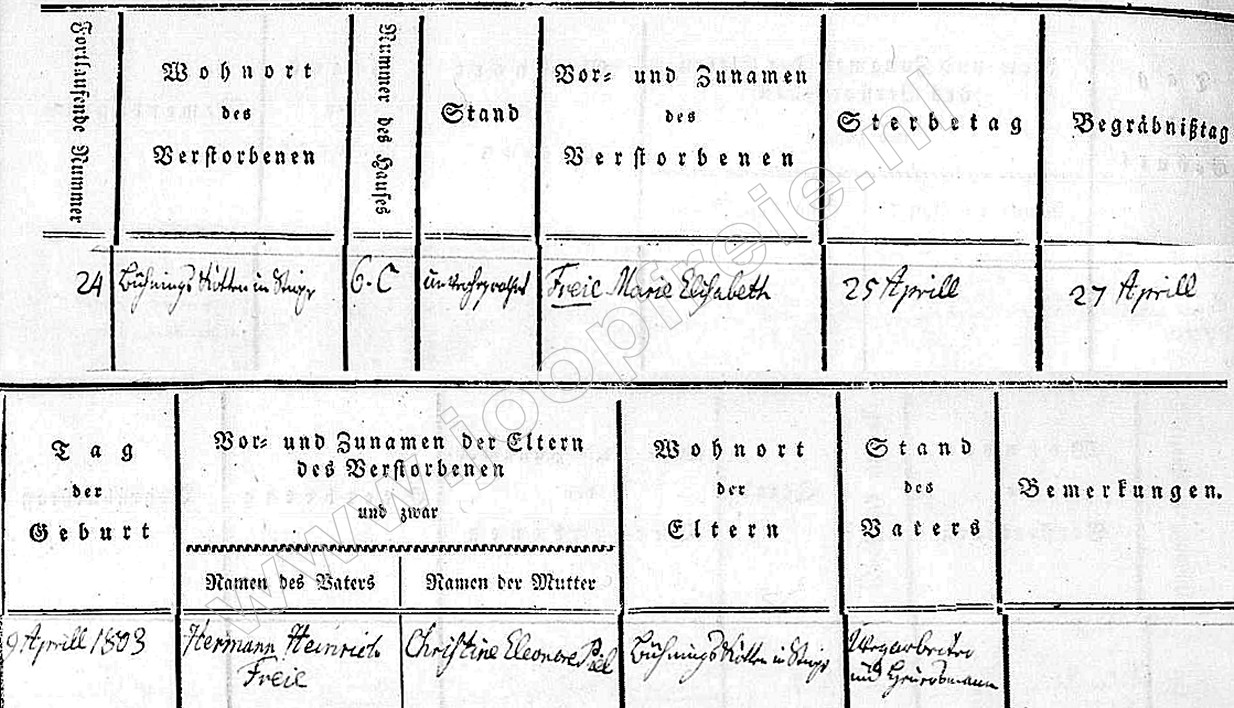 Fortlaufende Nummer
Wohnort
des
Verstorbenen
Nummer des Hauses
Stand
Vor- und Zunamen
des
Verstorbenen
Sterbetag
Begräbnißtag
24
in
6.C
Freie Marie Elisabeth
25 Aprill
27 Aprill
Tag
der
Geburt
Vor- und Zunamen der Eltern
des Verstorbenen
und zwar
Namen des Vaters
Namen der Mutter
Wohnort
der
Eltern
Stand
des
Vaters
Bemerkungen.
9 Aprill 1803
Hermann Heinrich
Freie
Christine Eleonore Piel
in
und
www.joopfreie.nl